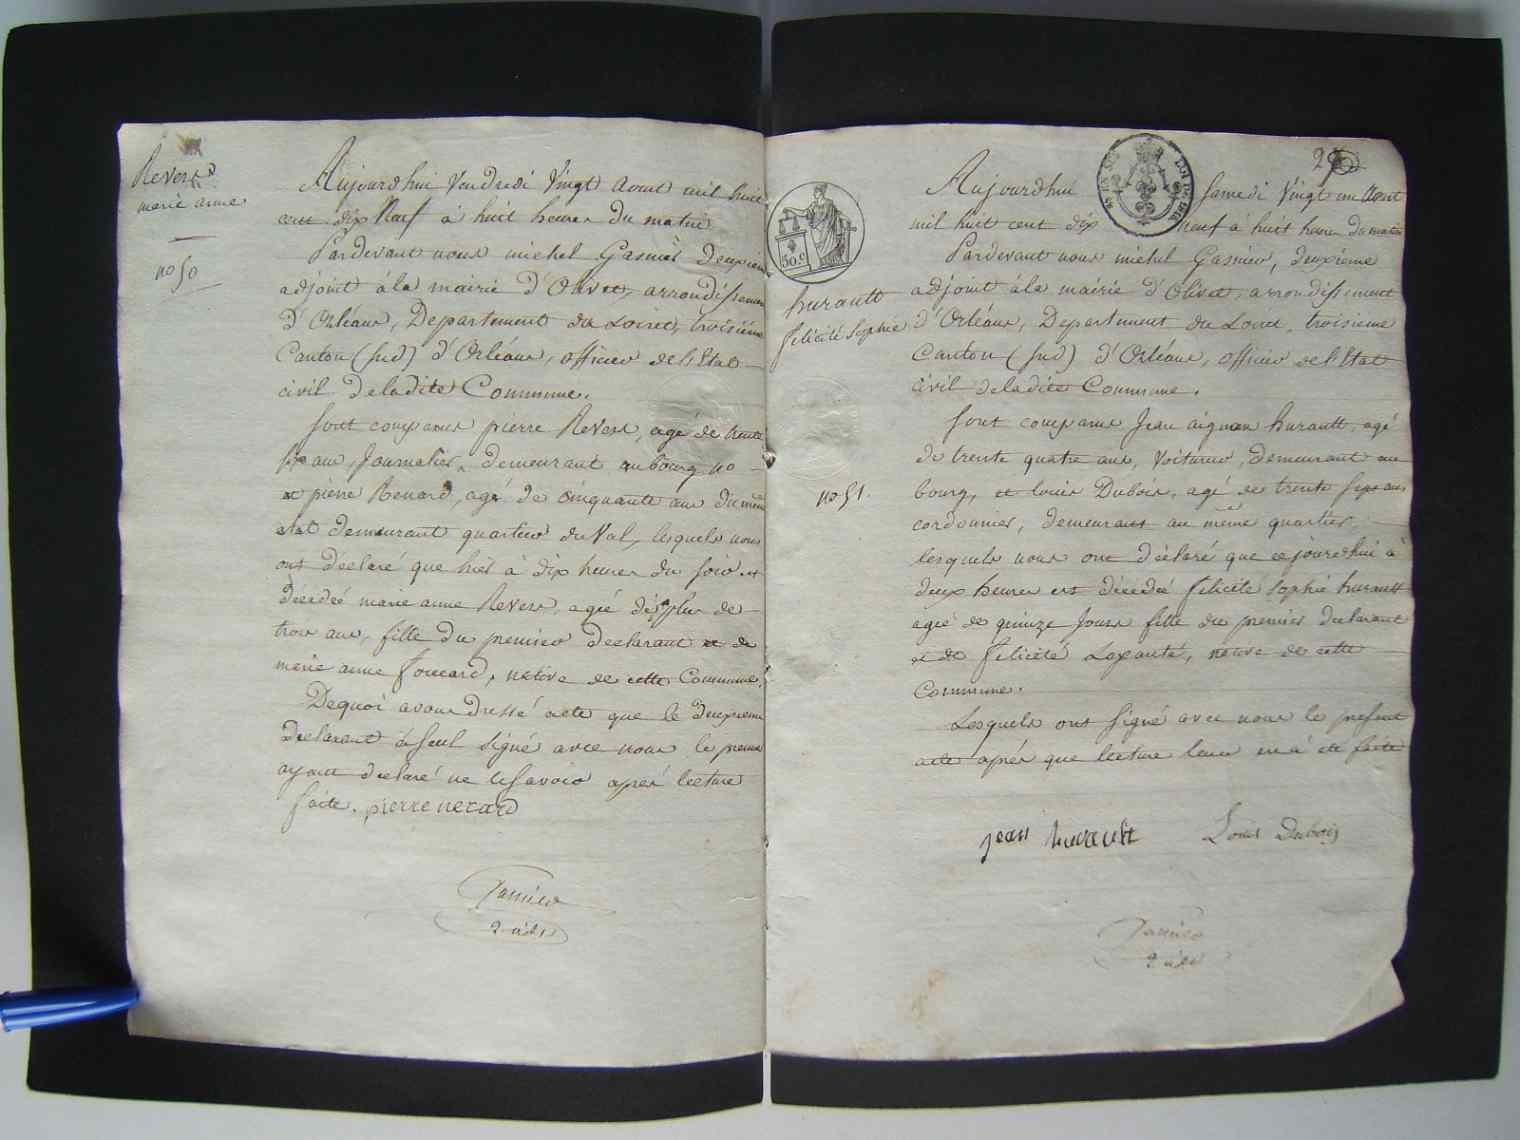 Revers
marie anne
no 50
Aujourdhui Vendredi Vingt Aout mil huit
cent dix Neuf à huit heures du matin
Pardevant nous michel Gasnier deuxieme
adjoint àla mairie d'Olivet, arrondissement
d'Orléans, Departement du Loiret, troisième
Canton (sud) d'Orléans, officier de l'Etat
civil deladite Commune.
sont comparus pierre Revers, agé de trente
six ans, Journalier, demeurant au bourg no
et pierre Renard, agé de cinquante ans du même
etat demeurant quartier du Val, lesquels nous
ont déclaré que hier à dix heures du soir est
décédée marie anne Revers, agée de plus de
trois ans, fille du premier declarant et de
marie anne foucard, native de cette Commune.
Dequoi avons dressé acte que le deuxieme
declarant à seul signé avec nous le premier
ayant declaré ne le savoir après lecture
faite. pierre renard
Gasnier
2 adj
29
hurault
felicité Sophie
no 51.
50 c
Aujourdhui Samedi Vingt un Aout
mil huit cent dix neuf à huit heures du matin
Pardevant nous michel Gasnier, deuxième
adjoint àla mairie d'Olivet, arrondissement
d'Orléans, Departement du Loiret, troisieme
Canton (sud) d'Orléans, officier de l'Etat
civil deladite Commune.
Sont comparus Jean aignan hurault, agé
de trente quatre ans, Voiturier, demeurant au
bourg, et louis Dubois, agé de trente six ans
cordonnier, demeurant au même quartier,
lesquels nous ont déclaré que cejourdhui à
deux heures est décédée felicité Sophie hurault
agée de quinze Jours fille du premier declarant
et de felicité, native de cette
Commune.
Lesquels ont signé avec nous le present
acte après que lecture leur en à été faite
jean hurault Louis Dubois
Gasnier
2 adj